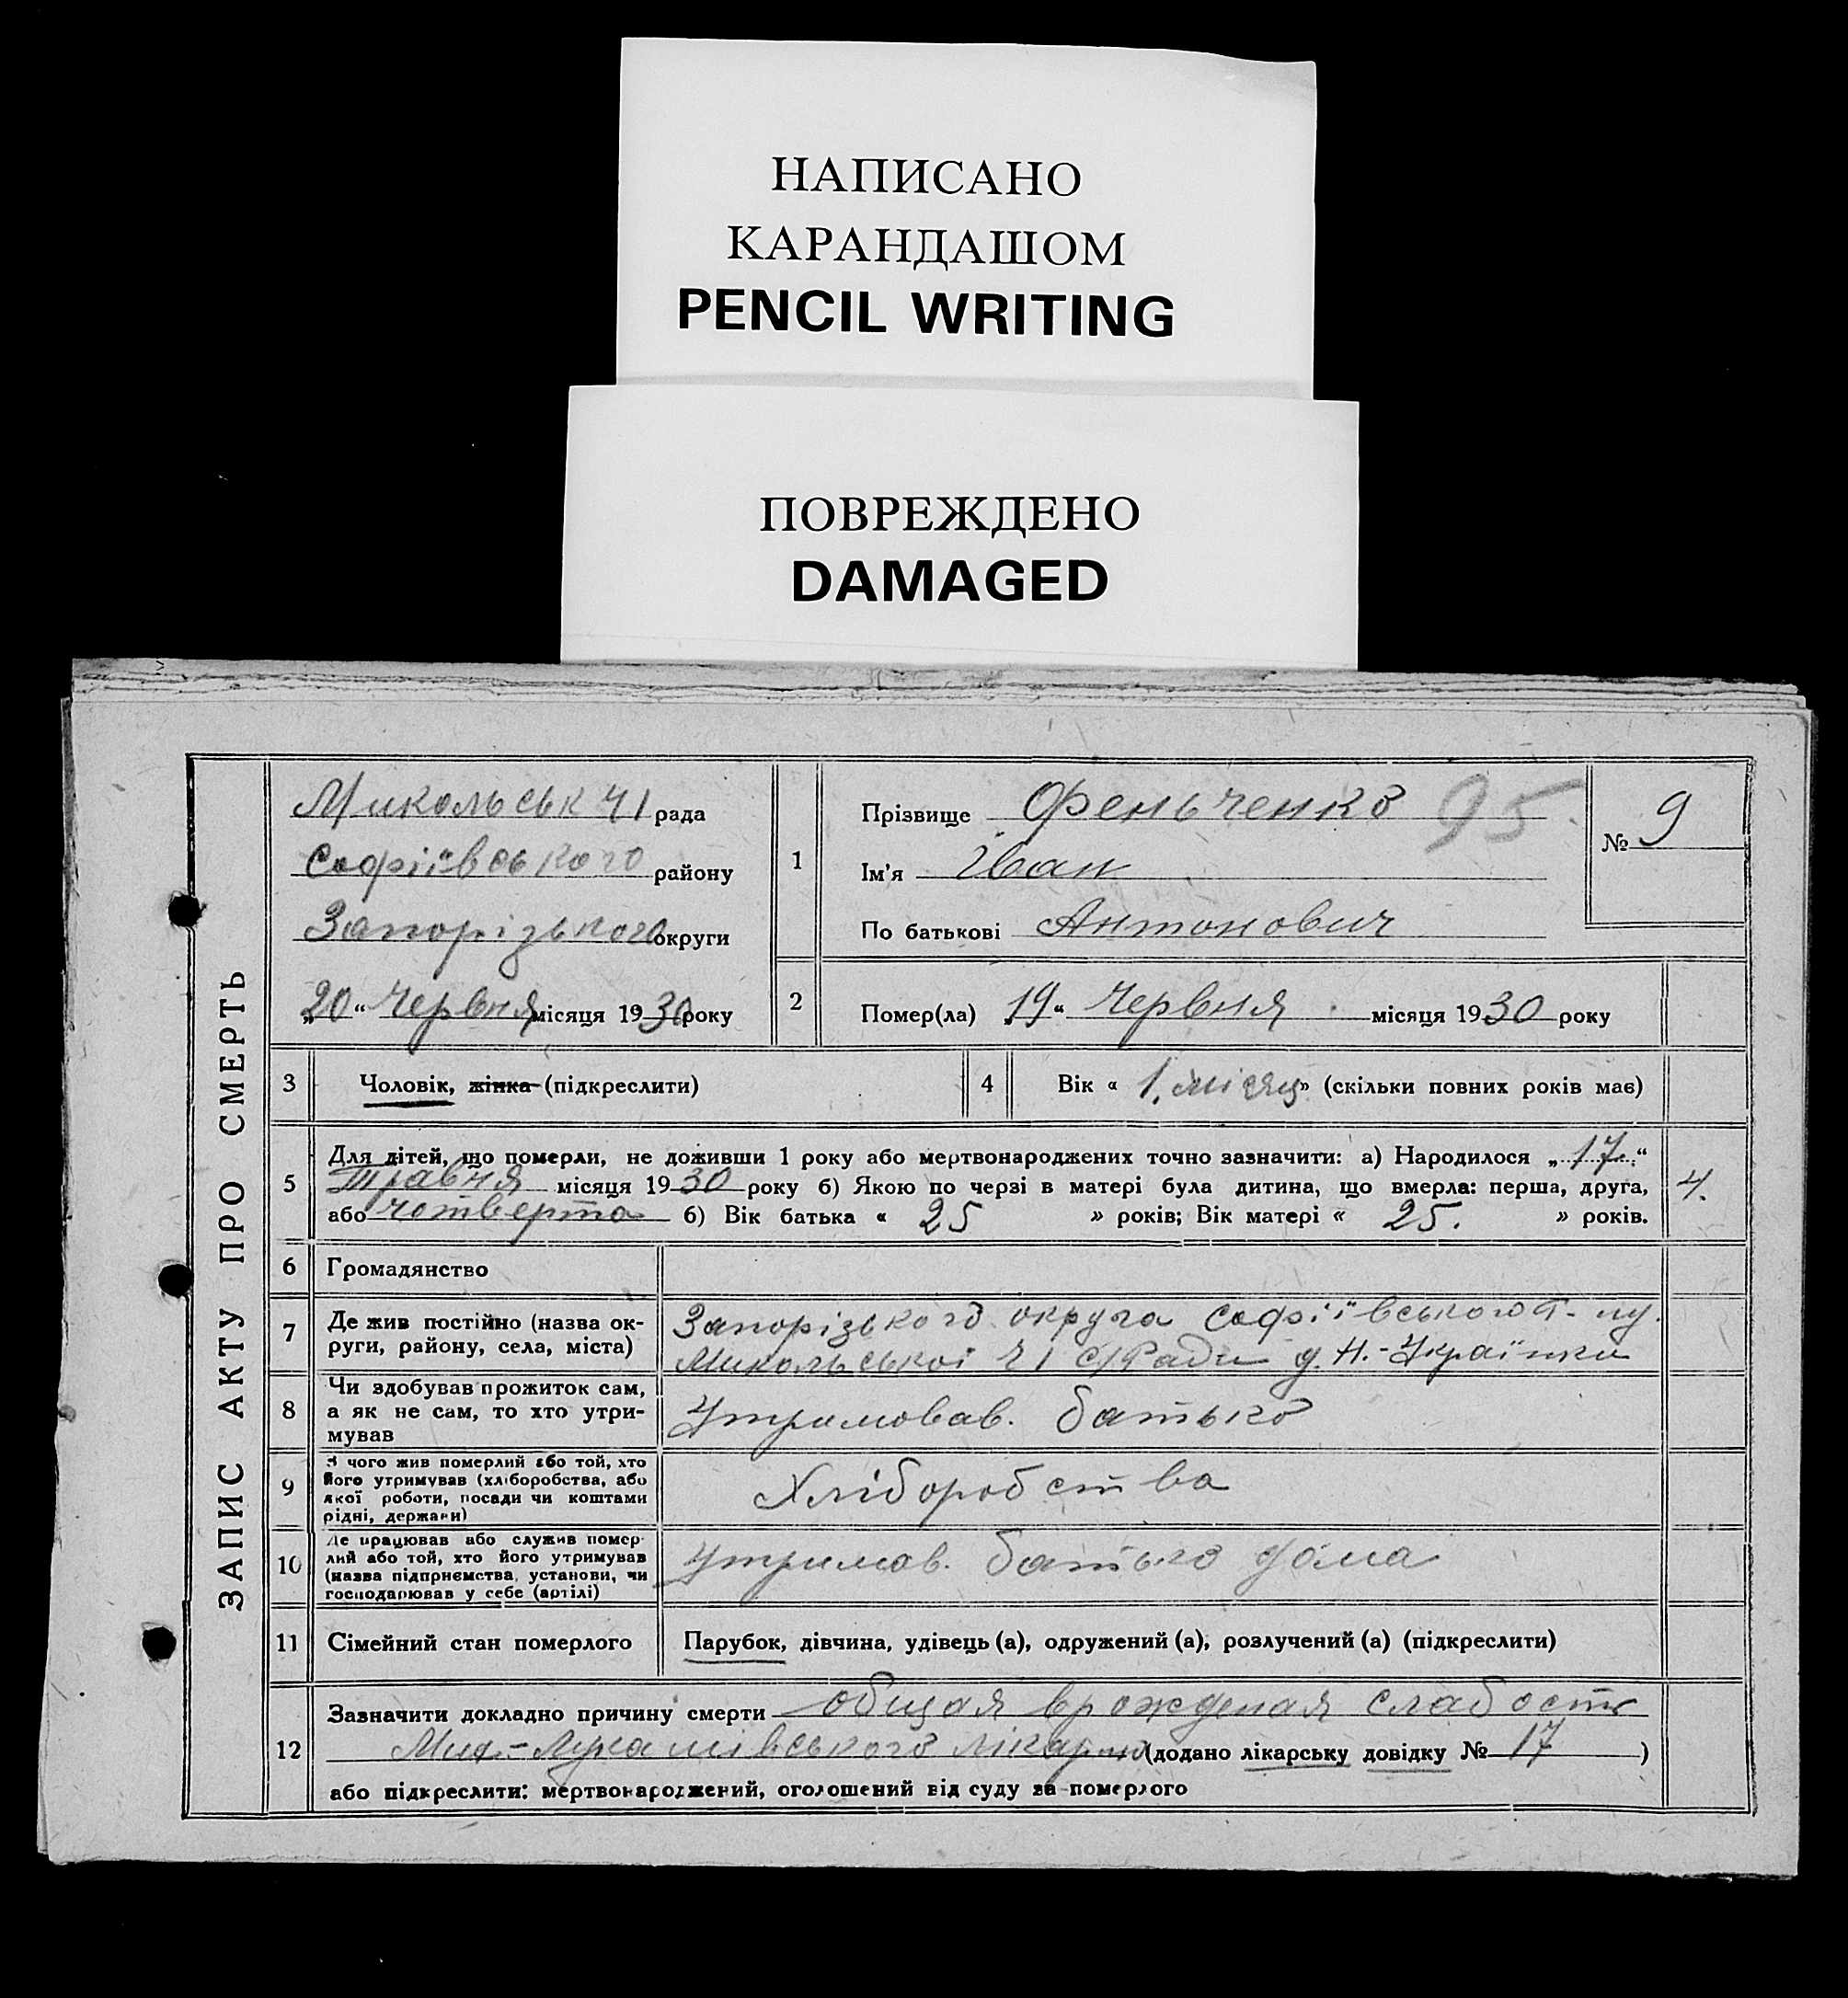 НАПИСАНО
КАРАНДАШОМ
PENCIL WRITING
ПОВРЕЖДЕНО
DAMAGED
ЗАПИС АКТУ ПРО СМЕРТЬ
Микольськ Ч1 рада
Софіївського району
Запорізького округи
„20“ Червня місяця 1930 року
1
Прізвище Феньченко 95
Ім'я Іван
По батькові Антонович
№ 9
2
Помер(ла) „19“ Червня місяця 1930 року
3 Чоловік, жінка (підкреслити)
4 Вік « 1. місяц » (скільки повних років має)
5 Для дітей, що померли, не доживши 1 року або мертвонароджених точно зазначити: а) Народилося „17.“
Травня місяця 1930 року б) Якою по черзі в матері була дитина, що вмерла: перша, друга, 4.
або четверта б) Вік батька « 25 » років; Вік матері « 25. » років.
6 Громадянство
7 Де жив постійно (назва ок-
руги, району, села, міста)
Запорізького округа Софіївського
Микольської Ч1 с/Ради Н.-Українка
8 Чи здобував прожиток сам,
а як не сам, то хто утри-
мував
Утримовав. батько
9 З чого жив померлий або той, хто
його утримував (хліборобства, або
якої роботи, посади чи коштами
рідні, держави)
Хліборобства
10 Де працював або служив помер-
лий або той, хто його утримував
(назва підприємства, установи, чи
господарював у себе (артілі)
Утримов. батько дома
11 Сімейний стан померлого
Парубок, дівчина, удівець (а), одружений (а), розлучений (а) (підкреслити)
12 Зазначити докладно причину смерти общая врожденая слабость
лікарню (додано лікарську довідку № 17 )
або підкреслити: мертвонароджений, оголошений від суду за померлого